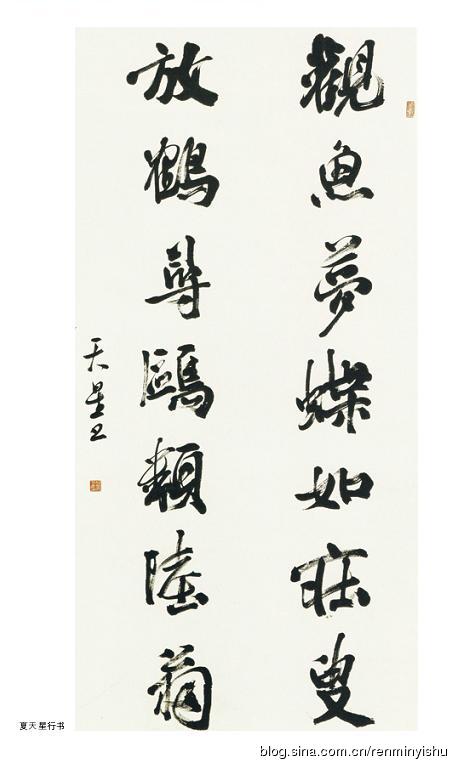 觀魚夢蝶如莊叟
放鶴尋鷗類陸翁
天星书
夏天星行书
blog.sina.com.cn/renminyishu